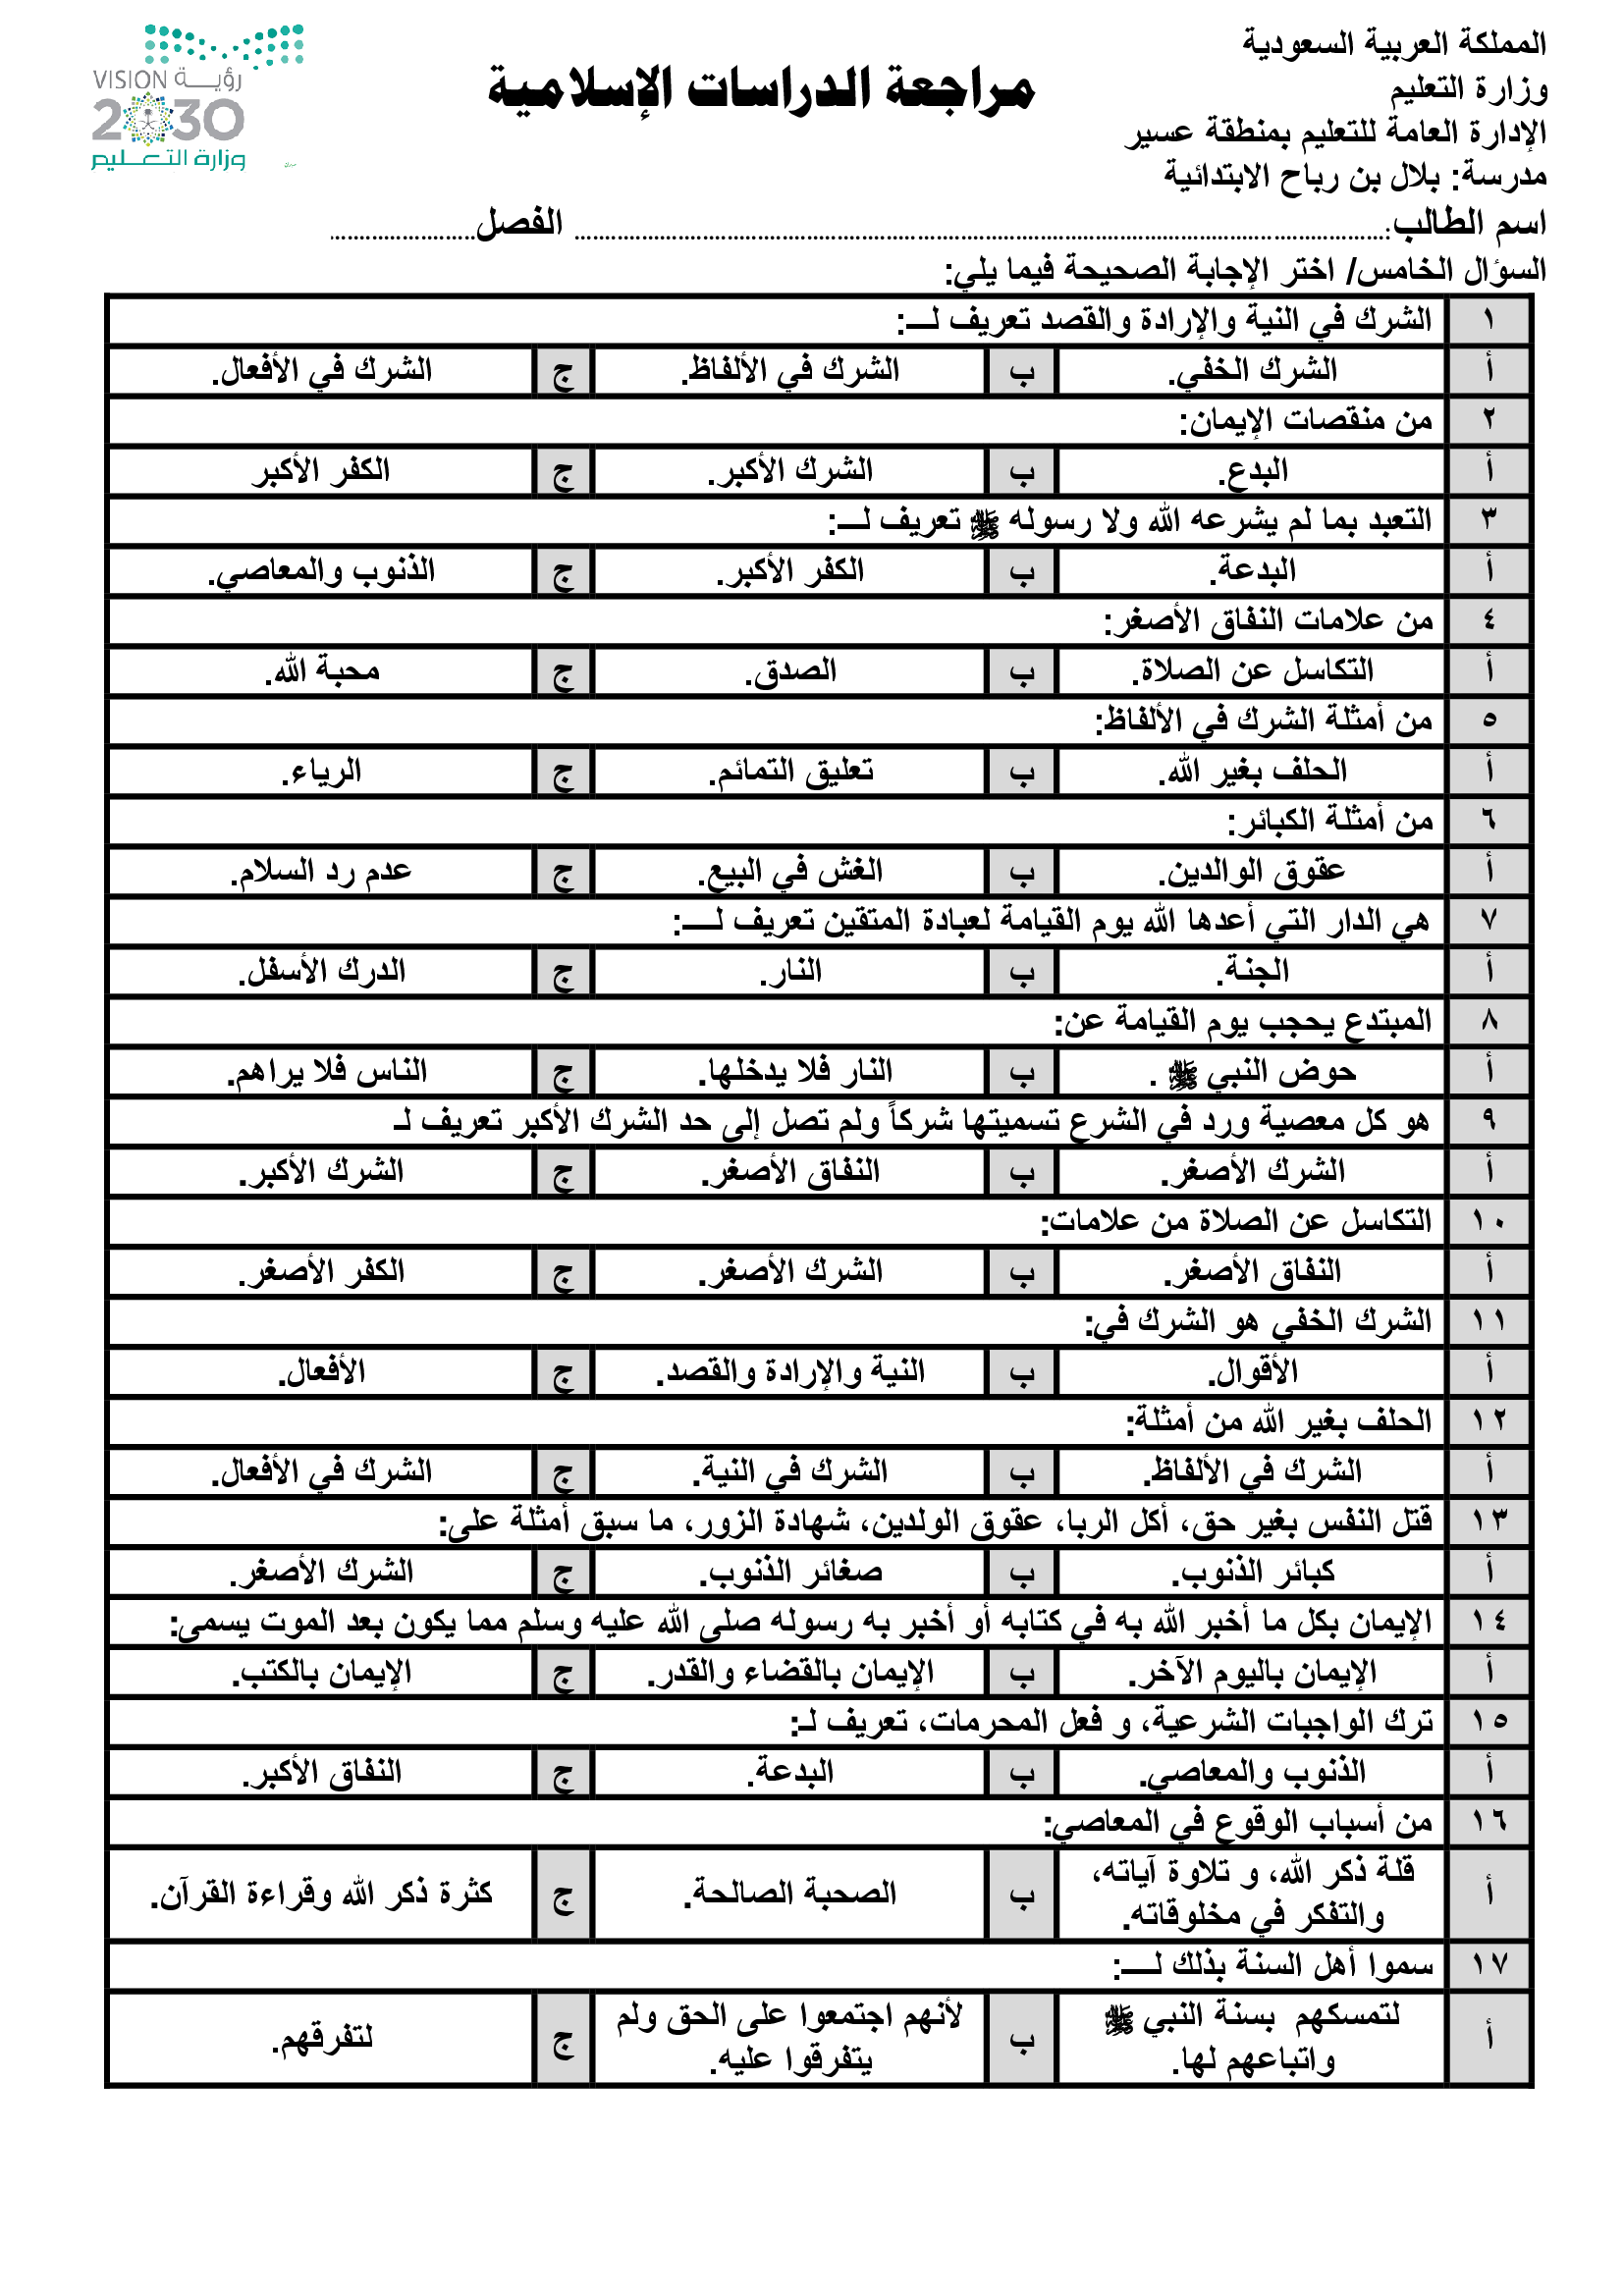 المملكة العربية السعودية
وزارة التعليم
الإدارة العامة للتعليم بمنطقة عسير
مدرسة: بلال بن رباح الابتدائية
مراجعة الدراسات الإسلامية
VISION رؤيــة
2030
وزارة التعـــليم
اسم الطالب:........................................................................ الفصل........................
السؤال الخامس/ اختر الإجابة الصحيحة فيما يلي:
١ الشرك في النية والإرادة والقصد تعريف لـــ:
أ الشرك الخفي. ب الشرك في الألفاظ. ج الشرك في الأفعال.
٢ من منقصات الإيمان:
أ البدع. ب الشرك الأكبر. ج الكفر الأكبر
٣ التعبد بما لم يشرعه الله ولا رسوله ﷺ تعريف لـــ:
أ البدعة. ب الكفر الأكبر. ج الذنوب والمعاصي.
٤ من علامات النفاق الأصغر:
أ التكاسل عن الصلاة. ب الصدق. ج محبة الله.
٥ من أمثلة الشرك في الألفاظ:
أ الحلف بغير الله. ب تعليق التمائم. ج الرياء.
٦ من أمثلة الكبائر:
أ عقوق الوالدين. ب الغش في البيع. ج عدم رد السلام.
٧ هي الدار التي أعدها الله يوم القيامة لعبادة المتقين تعريف لــــ:
أ الجنة. ب النار. ج الدرك الأسفل.
٨ المبتدع يحجب يوم القيامة عن:
أ حوض النبي ﷺ . ب النار فلا يدخلها. ج الناس فلا يراهم.
٩ هو كل معصية ورد في الشرع تسميتها شركاً ولم تصل إلى حد الشرك الأكبر تعريف لـ
أ الشرك الأصغر. ب النفاق الأصغر. ج الشرك الأكبر.
١٠ التكاسل عن الصلاة من علامات:
أ النفاق الأصغر. ب الشرك الأصغر. ج الكفر الأصغر.
١١ الشرك الخفي هو الشرك في:
أ الأقوال. ب النية والإرادة والقصد. ج الأفعال.
١٢ الحلف بغير الله من أمثلة:
أ الشرك في الألفاظ. ب الشرك في النية. ج الشرك في الأفعال.
١٣ قتل النفس بغير حق، أكل الربا، عقوق الولدين، شهادة الزور، ما سبق أمثلة على:
أ كبائر الذنوب. ب صغائر الذنوب. ج الشرك الأصغر.
١٤ الإيمان بكل ما أخبر الله به في كتابه أو أخبر به رسوله صلى الله عليه وسلم مما يكون بعد الموت يسمى:
أ الإيمان باليوم الآخر. ب الإيمان بالقضاء والقدر. ج الإيمان بالكتب.
١٥ ترك الواجبات الشرعية، و فعل المحرمات، تعريف لـ:
أ الذنوب والمعاصي. ب البدعة. ج النفاق الأكبر.
١٦ من أسباب الوقوع في المعاصي:
أ قلة ذكر الله، و تلاوة آياته،
والتفكر في مخلوقاته. ب الصحبة الصالحة. ج كثرة ذكر الله وقراءة القرآن.
١٧ سموا أهل السنة بذلك لــــ:
أ لتمسكهم بسنة النبي ﷺ
واتباعهم لها. ب لأنهم اجتمعوا على الحق ولم
يتفرقوا عليه. ج لتفرقهم.